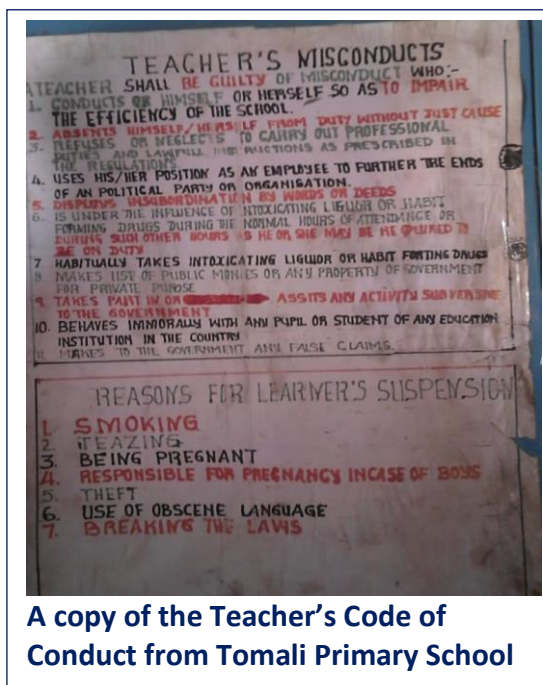 TEACHER'S MISCONDUCTS
A TEACHER SHALL BE GUILTY OF MISCONDUCT WHO:-
1. CONDUCTS OR HIMSELF OR HERSELF SO AS TO IMPAIR
THE EFFICIENCY OF THE SCHOOL.
2. ABSENTS HIMSELF/HERSELF FROM DUTY WITHOUT JUST CAUSE
3. REFUSES OR NEGLECTS TO CARRY OUT PROFESSIONAL
DUTIES AND LAWFULL INSTRUCTIONS AS PRESCRIBED IN
THE REGULATIONS
4. USES HIS/HER POSITION AS AN EMPLOYEE TO FURTHER THE ENDS
OF AN POLITICAL PARTY OR ORGANISATION.
5. DISPLAYS INSUBORDINATION BY WORDS OR DEEDS
6. IS UNDER THE INFLUENCE OF INTOXICATING LIGUOR OR HABIT
FORMING DRUGS DURING THE NORMAL HOURS OF ATTENDANCE OR
DURING SUCH OTHER HOURS AS HE OR SHE MAY BE RE QUIRED TO
BE ON DUTY
7 HABITUALLY TAKES INTOXICATING LIGUIOR OR HABIT FORTING DRUGS
8 MAKES USE OF PUBLIC MONIES OR ANY PROPERTY OF GOVERNMENT
FOR PRIVATE PURPOSE
9. TAKES PART IN OR ASSITS ANY ACTIVITY SUBVERSIVE
TO THE GOVERNMENT
10. BEHAVES IMMORALLY WITH ANY PUPIL OR STUDENT OF ANY EDUCATION
INSTITUTION IN THE COUNTRY
11. MAKES TO THE GOVERNMENT ANY FALSE CLAIMS.
REASONS FOR LEARNER'S SUSPENSION
1. SMOKING
2. TEAZING
3. BEING PREGNANT
4. RESPONSIBLE FOR PREGNANCY INCASE OF BOYS
5. THEFT
6. USE OF OBSCENE LANGUAGE
7. BREAKING THE LAWS
A copy of the Teacher's Code of
Conduct from Tomali Primary School